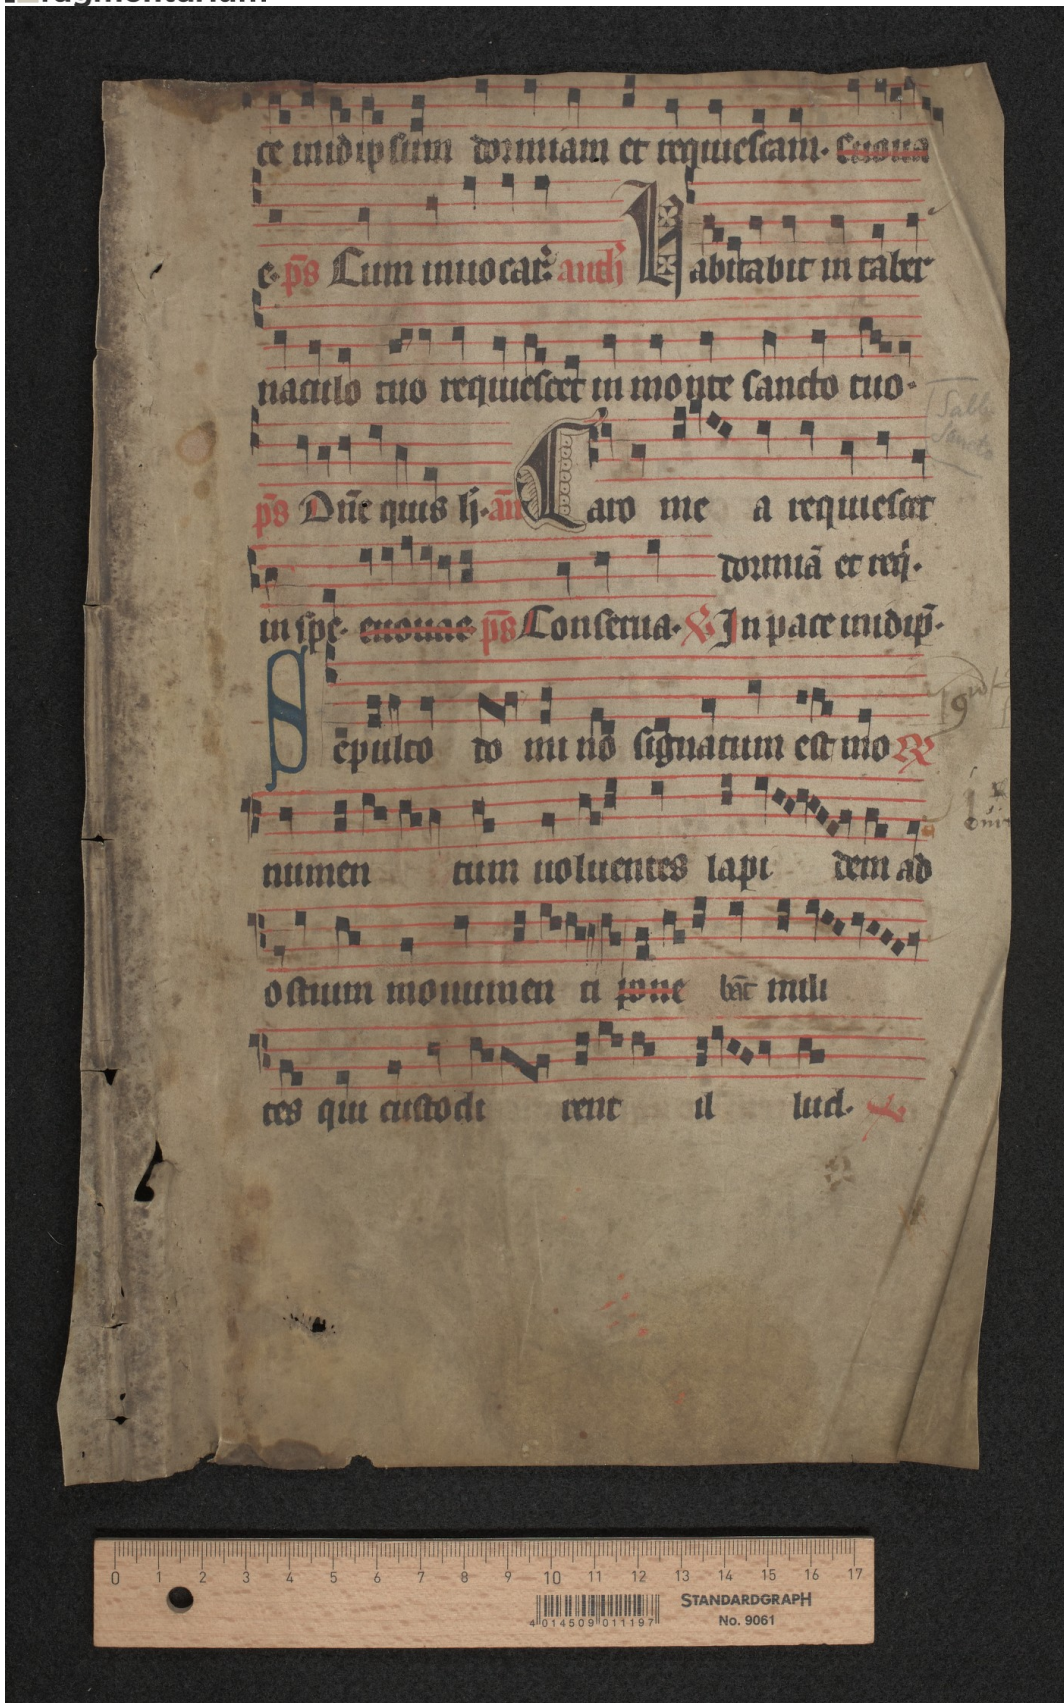 ragmentarium
ce inidipsum dormiam et requiescam. Euoua
e. p̄s Cum inuocar̄: anth̄ Habitabit in taber
naculo tuo requiescet in monte sancto tuo.
p̄s Dn̄e quis h̄. an̄ Caro me a requiescet
dormiā et req̄.
in spe. euouae p̄s Conserua. V In pace inidip̄.
Sepulto do mi no signatum est mo R
numen tum uoluentes lapi dem ad
ostium monumen ti pone ban̄t mili
tes qui custodi rent il lud. V
Sabb.
Sancto
19
0 1 2 3 4 5 6 7 8 9 10 11 12 13 14 15 16 17
STANDARDGRAPH
No. 9061
4 014509 011197